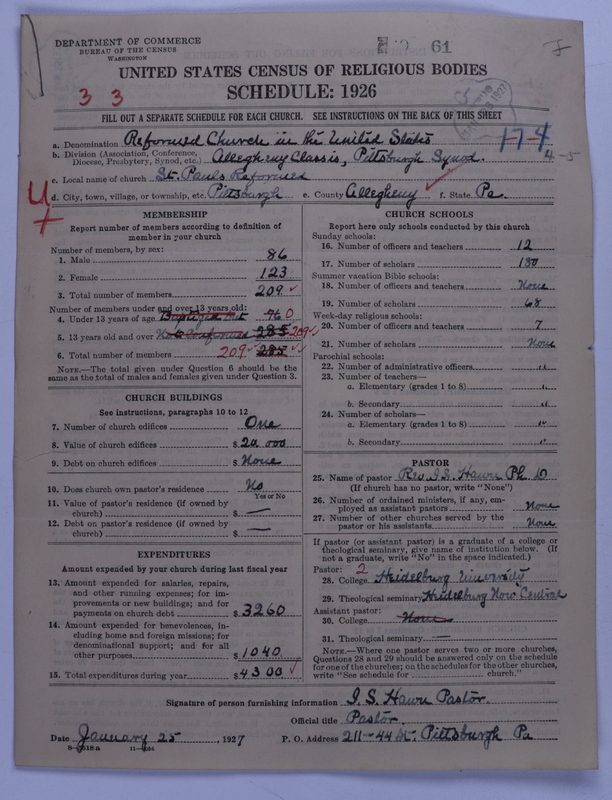 DEPARTMENT OF COMMERCE
BUREAU OF THE CENSUS
WASHINGTON
61
UNITED STATES CENSUS OF RELIGIOUS BODIES
SCHEDULE: 1926
3 3
FILL OUT A SEPARATE SCHEDULE FOR EACH CHURCH. SEE INSTRUCTIONS ON THE BACK OF THIS SHEET
17-4
4-5
a. Denomination Reformed Church in the United States
b. Division (Association, Conference, Diocese, Presbytery, Synod, etc.) Allegheny Classis, Pittsburgh Synod.
c. Local name of church St. Pauls Reformed
d. City, town, village, or township, etc. Pittsburgh e. County Allegheny f. State Pa.
MEMBERSHIP
Report number of members according to definition of
member in your church
Number of members, by sex:
1. Male 86
2. Female 123
3. Total number of members 209
Number of members under and over 13 years old:
4. Under 13 years of age 0
5. 13 years old and over 285 209
6. Total number of members 209 285
NOTE.—The total given under Question 6 should be the
same as the total of males and females given under Question 3.
CHURCH BUILDINGS
See instructions, paragraphs 10 to 12
7. Number of church edifices One
8. Value of church edifices $ 20,000
9. Debt on church edifices $ None
10. Does church own pastor's residence No
Yes or No
11. Value of pastor's residence (if owned by
church) $ —
12. Debt on pastor's residence (if owned by
church) $ —
EXPENDITURES
Amount expended by your church during last fiscal year
13. Amount expended for salaries, repairs,
and other running expenses; for im-
provements or new buildings; and for
payments on church debt $ 3260
14. Amount expended for benevolences, in-
cluding home and foreign missions; for
denominational support; and for all
other purposes $ 1040
15. Total expenditures during year $ 4300
CHURCH SCHOOLS
Report here only schools conducted by this church
Sunday schools:
16. Number of officers and teachers 12
17. Number of scholars 130
Summer vacation Bible schools:
18. Number of officers and teachers None
19. Number of scholars 68
Week-day religious schools:
20. Number of officers and teachers 7
21. Number of scholars None
Parochial schools:
22. Number of administrative officers "
23. Number of teachers—
a. Elementary (grades 1 to 8) "
b. Secondary "
24. Number of scholars—
a. Elementary (grades 1 to 8) "
b. Secondary "
PASTOR
25. Name of pastor Rev. I. S. Hawn Ph. D
(If church has no pastor, write "None")
26. Number of ordained ministers, if any, em-
ployed as assistant pastors None
27. Number of other churches served by the
pastor or his assistants None
If pastor (or assistant pastor) is a graduate of a college or
theological seminary, give name of institution below. (If
not a graduate, write "No" in the space indicated.)
Pastor: 2
28. College Heidelburg University
29. Theological seminary Heidelburg Now Central
Assistant pastor:
30. College None
31. Theological seminary —
NOTE.—Where one pastor serves two or more churches,
Questions 28 and 29 should be answered only on the schedule
for one of the churches; on the schedules for the other churches,
write "See schedule for church."
Signature of person furnishing information I. S. Hawn Pastor.
Official title Pastor.
Date January 25, 1927 P. O. Address 211-44 St. Pittsburgh Pa